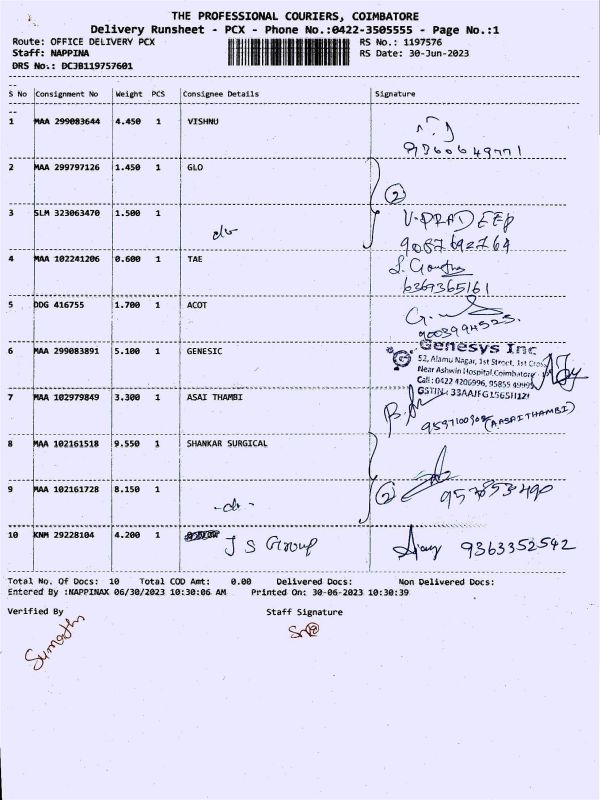 THE PROFESSIONAL COURIERS, COIMBATORE
Delivery Runsheet - PCX - Phone No.:0422-3505555 - Page No.:1
Route: OFFICE DELIVERY PCX
RS No.: 1197576
Staff: NAPPINA
RS Date: 30-Jun-2023
DRS No.: DCJB119757601
S No Consignment No Weight PCS Consignee Details Signature
1 MAA 299083644 4.450 1 VISHNU
9360649771
2 MAA 299797126 1.450 1 GLO
2
3 SLM 323063470 1.500 1 do
V.PRADEEP
9087692764
4 MAA 102241206 0.600 1 TAE
6369365161
5 DDG 416755 1.700 1 ACOT
6 MAA 299083891 5.100 1 GENESIC
Genesys Inc
52, Alamu Nagar, 1st Street, 1st Cross
Near Ashwin Hospital, Coimbatore
Call : 0422 4206996, 95855 49995
GSTIN : 33AAJFG1565H1ZI
7 MAA 102979849 3.300 1 ASAI THAMBI
(AASAITHAMBI)
8 MAA 102161518 9.550 1 SHANKAR SURGICAL
9 MAA 102161728 8.150 1 -do-
2
10 KNM 29228104 4.200 1 J S Group
9363352542
Total No. Of Docs: 10 Total COD Amt: 0.00 Delivered Docs: Non Delivered Docs:
Entered By :NAPPINAX 06/30/2023 10:30:06 AM Printed On: 30-06-2023 10:30:39
Verified By Staff Signature
Sumathi